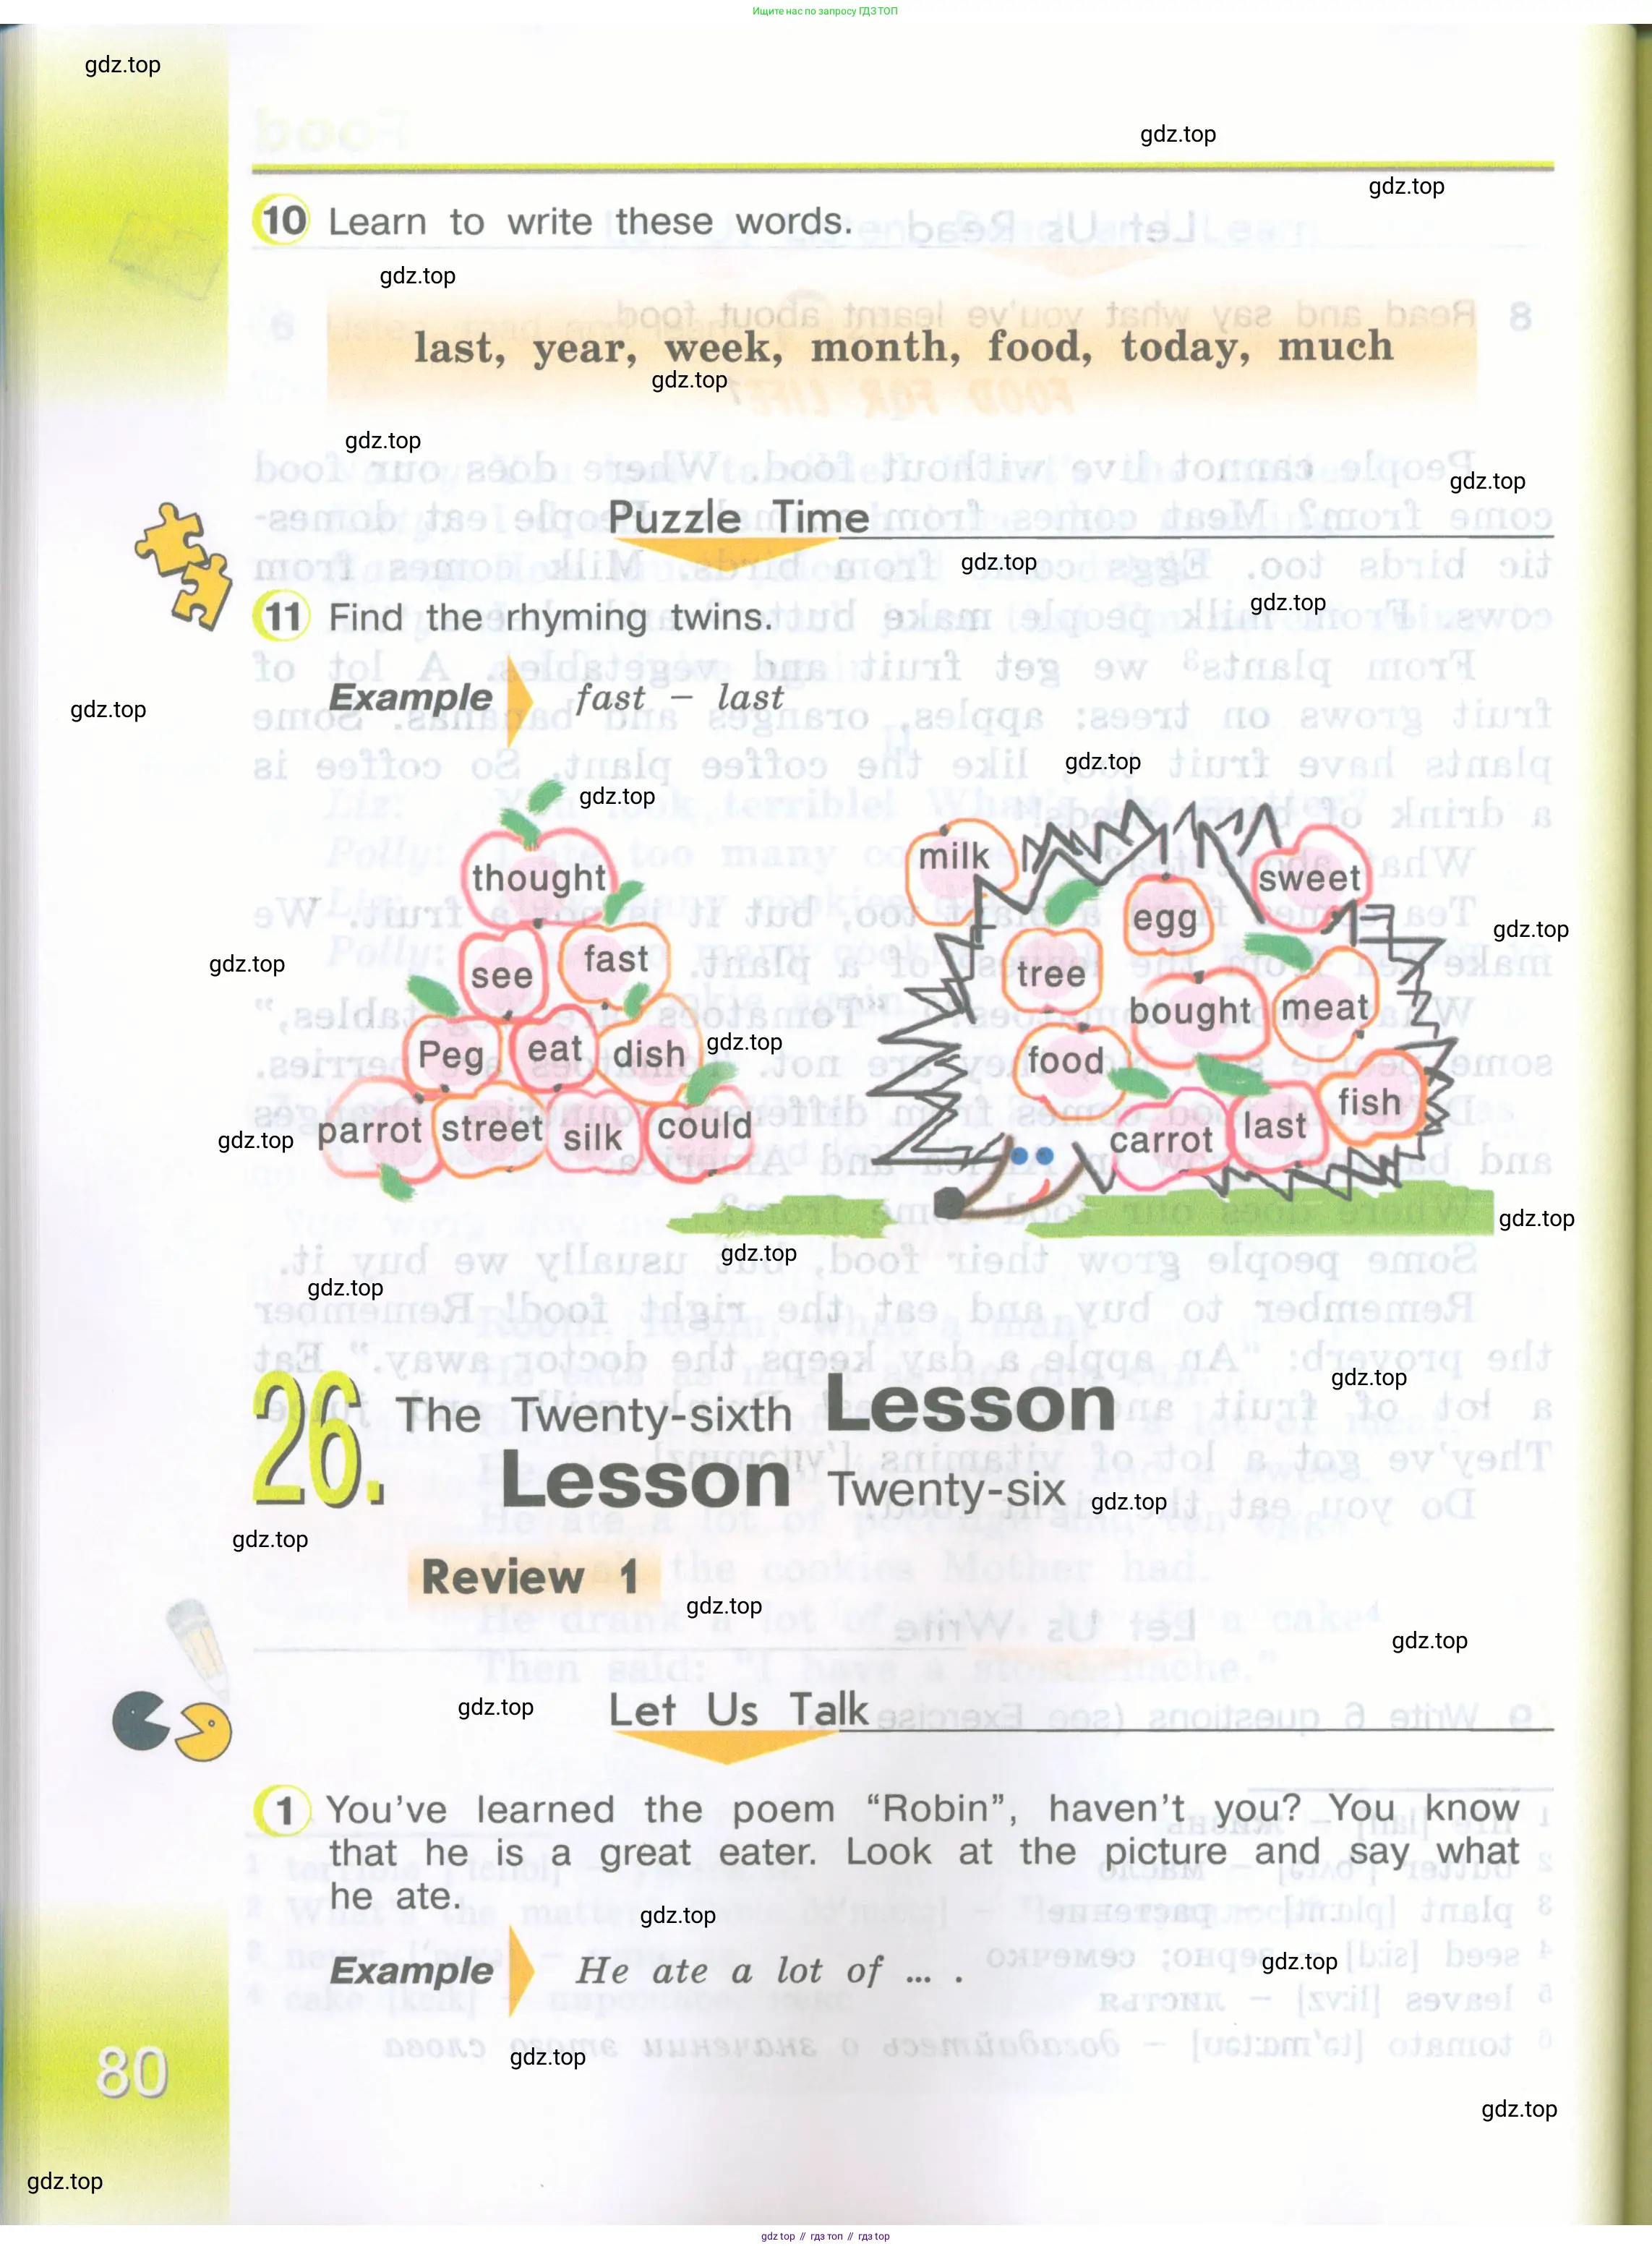 Ищите нас по запросу ГДЗ ТОП
gdz.top
gdz.top
gdz.top
10 Learn to write these words.
gdz.top
last, year, week, month, food, today, much
gdz.top
gdz.top
gdz.top
Puzzle Time
gdz.top
gdz.top
11 Find the rhyming twins.
Example fast – last
gdz.top
gdz.top
gdz.top
thought
see
fast
Peg
eat
dish
parrot
street
silk
could
milk
sweet
egg
tree
bought
meat
food
fish
carrot
last
gdz.top
gdz.top
gdz.top
gdz.top
gdz.top
gdz.top
gdz.top
gdz.top
26. The Twenty-sixth Lesson
Lesson Twenty-six
gdz.top
gdz.top
Review 1
gdz.top
gdz.top
gdz.top
Let Us Talk
1 You've learned the poem “Robin”, haven't you? You know
that he is a great eater. Look at the picture and say what
he ate.
gdz.top
Example He ate a lot of ... .
gdz.top
gdz.top
80
gdz.top
gdz.top
gdz top // гдз топ // гдз top